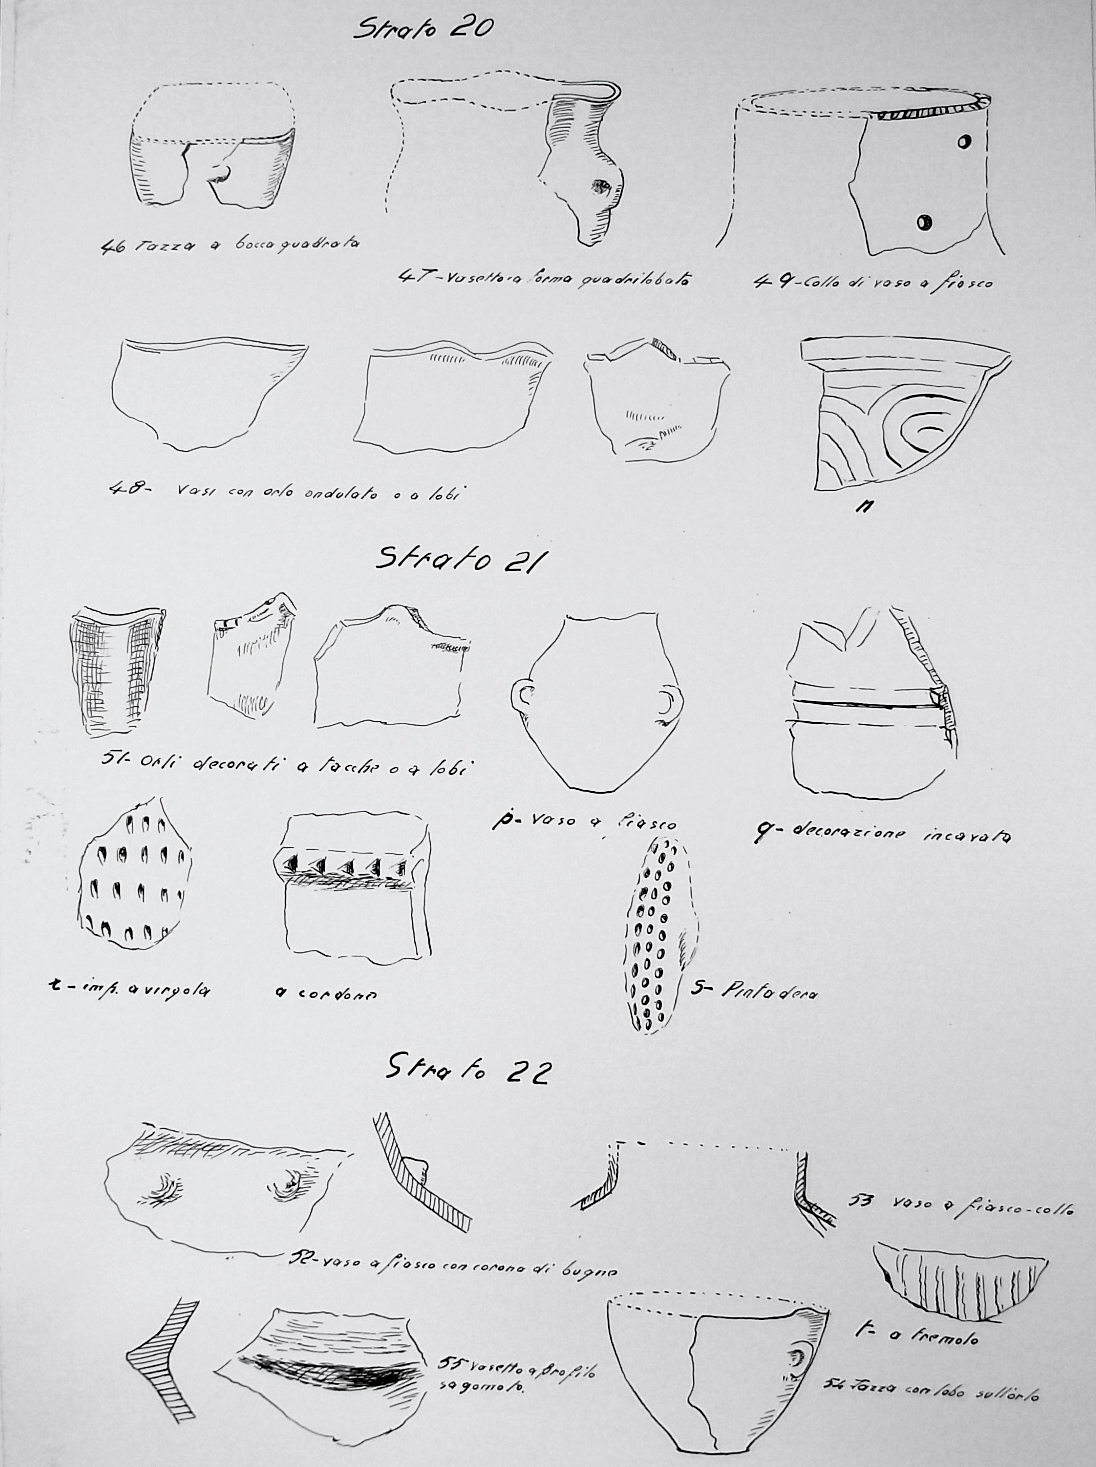 Strato 20
46 Tazza a bocca quadrata
47-Vasetto a forma quadrilobata
49-Collo di vaso a fiasco
48- Vasi con orlo ondulato o a lobi
n
Strato 21
51-Orli decorati a tacche o a lobi
p- vaso a fiasco
q- decorazione incavata
r- imp. a virgola
a cordoni
s- Pintadera
Strato 22
53 vaso a fiasco-collo
52-vaso a fiasco con corona di bugne
t- a tremolo
55 vasetto a profilo
sagomato.
54 Tazza con lobo sull'orlo